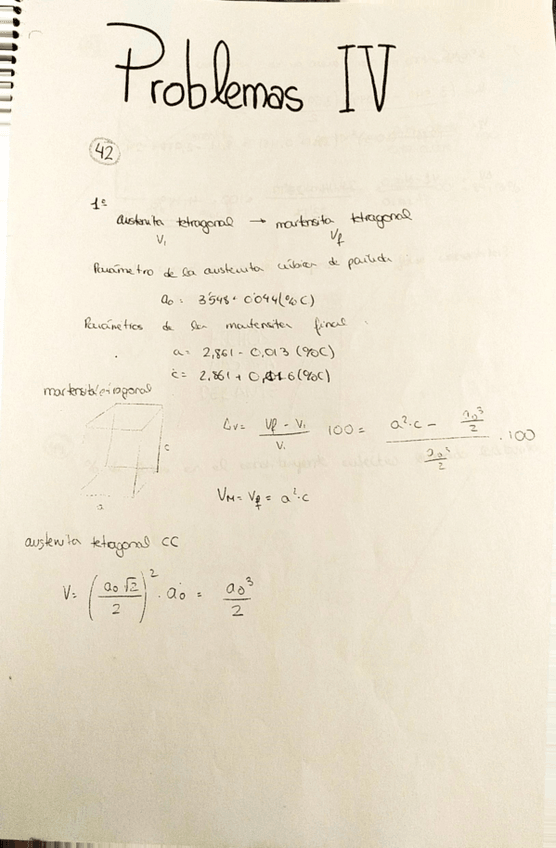 Problemas IV
42
1º
austenita tetragonal → martensita tetragonal
Vi Vf
Parámetro de la austenita cúbica de partida
a₀ = 3'548 + 0'044 (%C)
Parámetros de la martensita final
a = 2,861 - 0,013 (%C)
c = 2,861 + 0,116 (%C)
martensita tetragonal
c
a
Δv = (Vf - Vi)/Vi 100 = (a²·c - a₀³/2)/(a₀³/2) · 100
VM = Vf = a²·c
austenita tetragonal CC
V = (a₀√2/2)² · a₀ = a₀³/2